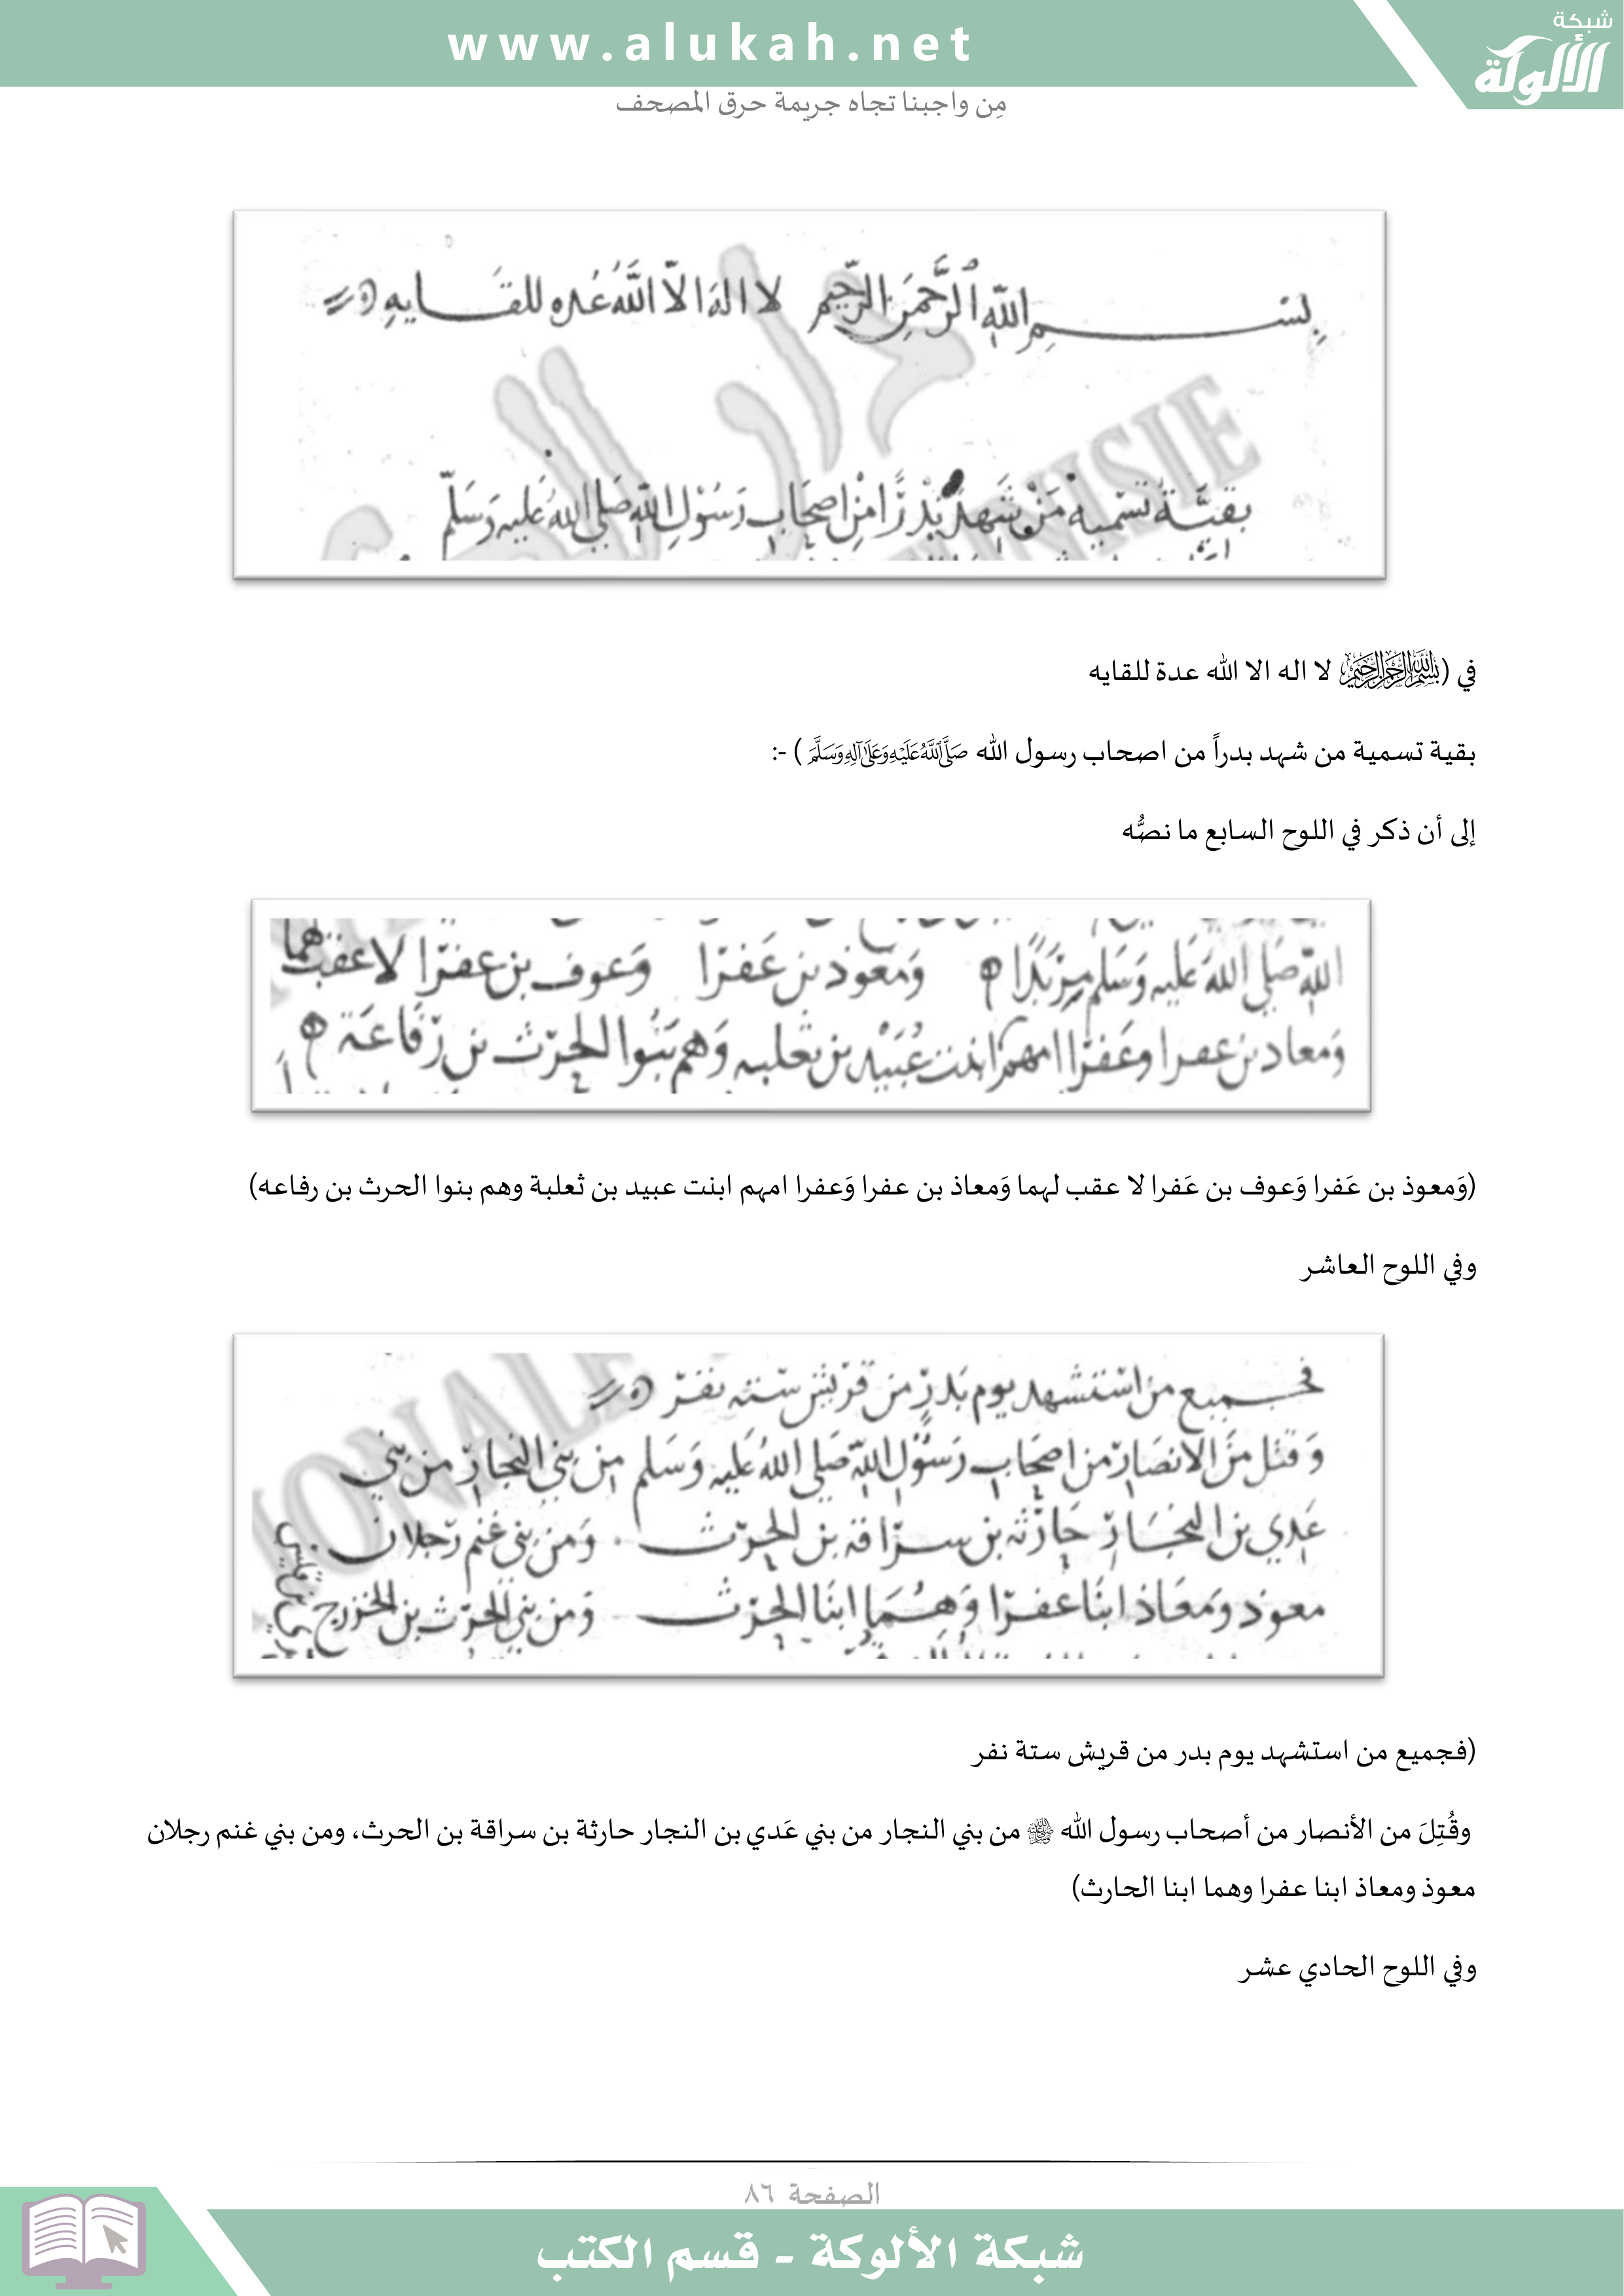 www.alukah.net
شبكة
الألوكة
مِن واجبنا تجاه جريمة حرق المصحف
بِسْمِ اللهِ الرَّحْمَنِ الرَّحِيمِ لا اله الا الله عده للقايه
بقية تسمية من شهد بدرًا من اصحاب رسول الله صلى الله عليه وسلم
في (بسم الله الرحمن الرحيم لا اله الا الله عدة للقايه
بقية تسمية من شهد بدراً من اصحاب رسول الله صَلَّى اللَّهُ عَلَيْهِ وَعَلَى آلِهِ وَسَلَّمَ ) -:
إلى أن ذكر في اللوح السابع ما نصُّه
الله صلى الله عليه وسلم ومعوذ بن عفرا وعوف بن عفرا لا عقب لهما
ومعاذ بن عفرا وعفرا امهم ابنت عبيد بن ثعلبه وهم بنوا الحرث بن رفاعة
(وَمعوذ بن عَفرا وَعوف بن عَفرا لا عقب لهما وَمعاذ بن عفرا وَعفرا امهم ابنت عبيد بن ثعلبة وهم بنوا الحرث بن رفاعه)
وفي اللوح العاشر
فجميع من استشهد يوم بدر من قريش ستة نفر
وقتل من الانصار من اصحاب رسول الله صلى الله عليه وسلم من بني النجار من بني
عدي بن النجار حارثة بن سراقة بن الحرث ومن بني غنم رجلان
معوذ ومعاذ ابنا عفرا وهما ابنا الحرث ومن بني الحرث بن الخزرج
(فجميع من استشهد يوم بدر من قريش ستة نفر
وقُتِلَ من الأنصار من أصحاب رسول الله ﷺ من بني النجار من بني عَدي بن النجار حارثة بن سراقة بن الحرث، ومن بني غنم رجلان
معوذ ومعاذ ابنا عفرا وهما ابنا الحارث)
وفي اللوح الحادي عشر
الصفحة ٨٦
شبكة الألوكة - قسم الكتب